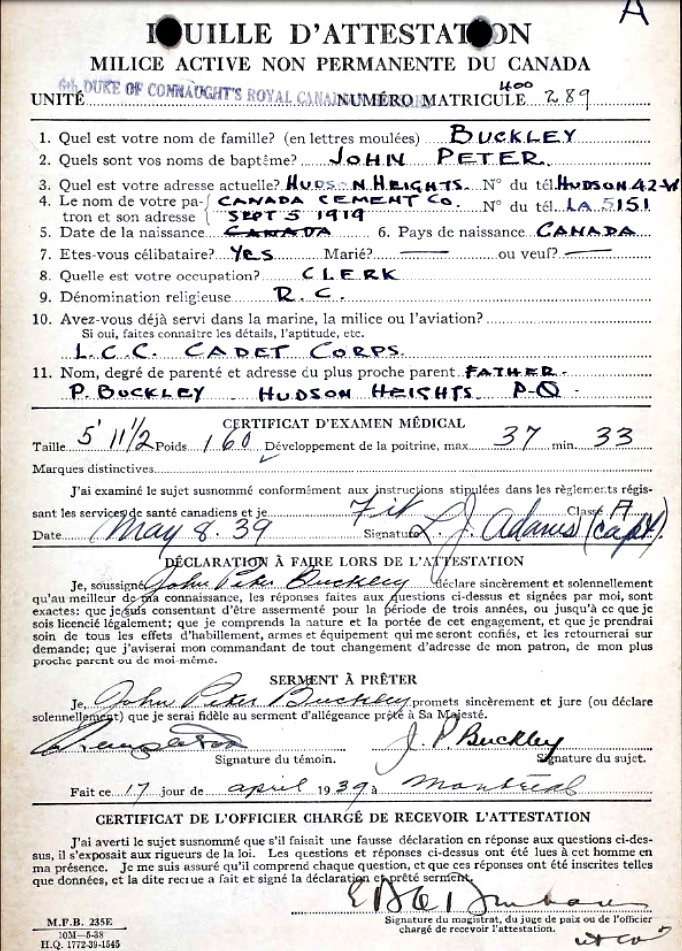 A
FEUILLE D'ATTESTATION
MILICE ACTIVE NON PERMANENTE DU CANADA
UNITÉ 6th DUKE OF CONNAUGHT'S ROYAL NUMÉRO MATRICULE 400 289
1. Quel est votre nom de famille? (en lettres moulées) BUCKLEY
2. Quels sont vos noms de baptême? JOHN PETER.
3. Quel est votre adresse actuelle? HUDSON HEIGHTS. N° du tél. HUDSON 42-W
4. Le nom de votre pa- CANADA CEMENT CO. N° du tél. LA 5151
tron et son adresse SEPT 5 1919
5. Date de la naissance CANADA 6. Pays de naissance CANADA
7. Etes-vous célibataire? YES Marié? — ou veuf? —
8. Quelle est votre occupation? CLERK
9. Dénomination religieuse R. C.
10. Avez-vous déjà servi dans la marine, la milice ou l'aviation?
Si oui, faites connaître les détails, l'aptitude, etc.
L.C.C. CADET CORPS.
11. Nom, degré de parenté et adresse du plus proche parent FATHER.
P. BUCKLEY HUDSON HEIGHTS P-Q.
CERTIFICAT D'EXAMEN MÉDICAL
Taille 5' 11 1/2 Poids 160 Développement de la poitrine, max 37 min. 33
Marques distinctives
J'ai examiné le sujet susnommé conformément aux instructions stipulées dans les règlements régis-
sant les services de santé canadiens et je Fit Classe A
Date May 8. 39 Signature L. J. Adams (capt).
DÉCLARATION À FAIRE LORS DE L'ATTESTATION
Je, soussigné John Peter Buckley déclare sincèrement et solennellement
qu'au meilleur de ma connaissance, les réponses faites aux questions ci-dessus et signées par moi, sont
exactes: que je suis consentant d'être assermenté pour la période de trois années, ou jusqu'à ce que je
sois licencié légalement; que je comprends la nature et la portée de cet engagement, et que je prendrai
soin de tous les effets d'habillement, armes et équipement qui me seront confiés, et les retournerai sur
demande; que j'aviserai mon commandant de tout changement d'adresse de mon patron, de mon plus
proche parent ou de moi-même.
SERMENT À PRÊTER
Je, John Peter Buckley promets sincèrement et jure (ou déclare
solennellement) que je serai fidèle au serment d'allégeance prêté à Sa Majesté.
J. P Buckley
Signature du témoin. Signature du sujet.
Fait ce 17 jour de april 1939 à Montréal
CERTIFICAT DE L'OFFICIER CHARGÉ DE RECEVOIR L'ATTESTATION
J'ai averti le sujet susnommé que s'il faisait une fausse déclaration en réponse aux questions ci-des-
sus, il s'exposait aux rigueurs de la loi. Les questions et réponses ci-dessus ont été lues à cet homme en
ma présence. Je me suis assuré qu'il comprend chaque question, et que ces réponses ont été inscrites telle
que données, et la dite recrue a fait et signé la déclaration et prêté serment.
Signature du magistrat, du juge de paix ou de l'officier
chargé de recevoir l'attestation.
M.F.B. 235E
10M—5-38
H.Q. 1772-39-1545